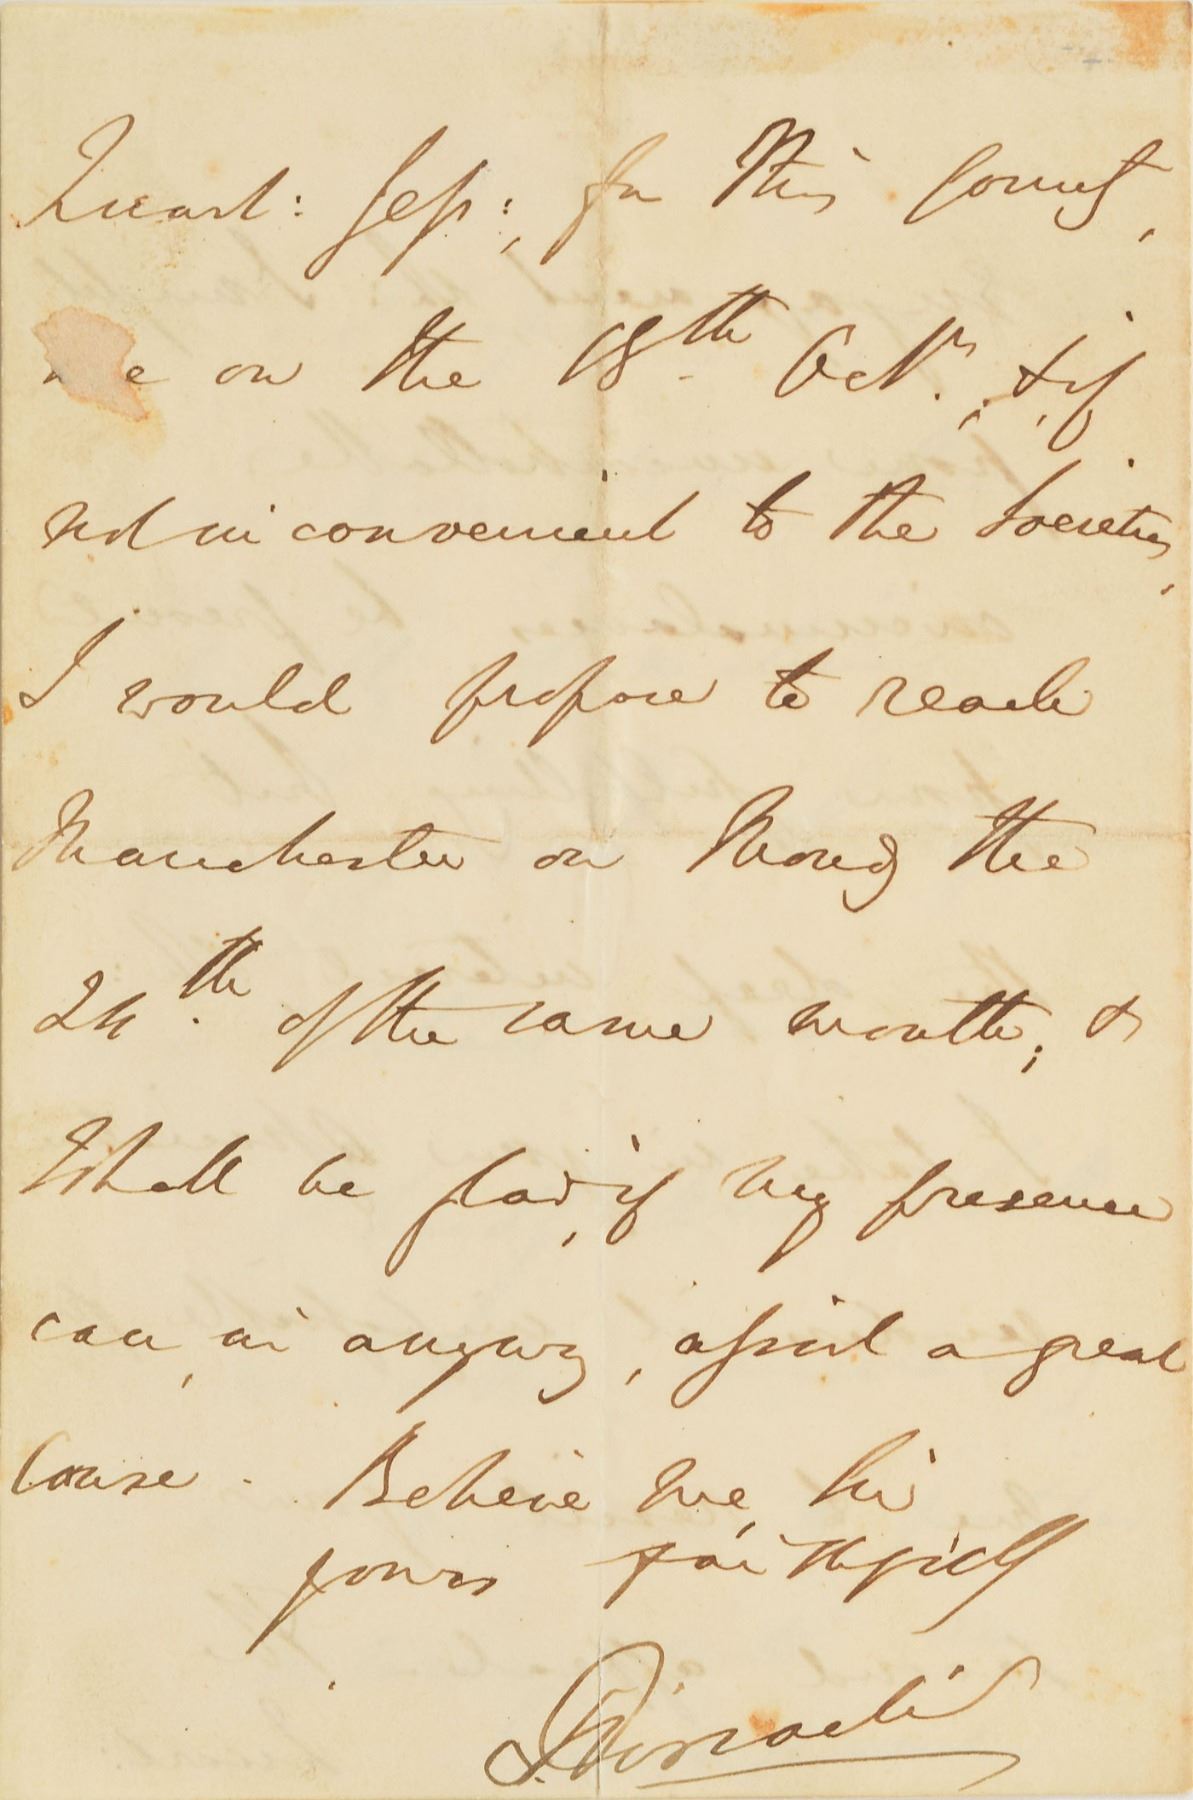 Quart: Sess:, for this County,
are on the 18th. Octr.; & if
not inconvenient to the Societies,
I would propose to reach
Manchester on Mondy the
24th. of the same month; &
shall be glad, if my presence
can, in anyway, assist a great
cause. Believe me, Sir
yours faithfully
B. Disraeli